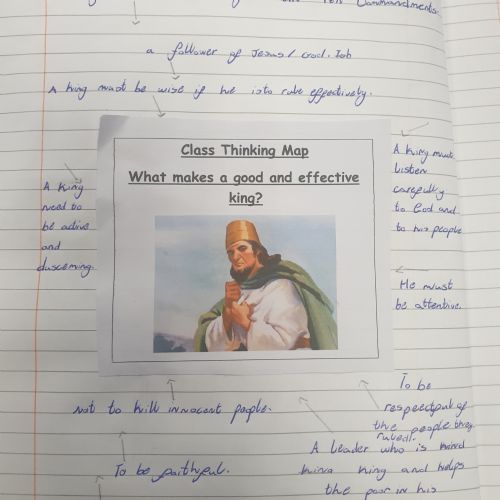 Commandments.
a follower of Jesus / God. Job
A king must be wise if he is to rule effectively.
Class Thinking Map
What makes a good and effective
king?
A king
need to
be active
and
discerning.
A king must
listen
carefully
to God and
to his people
He must
be attentive.
not to kill innocent people.
To be faithful.
To be
respectful of
the people they
ruled.
A leader who is kind
king and helps
the poor in his